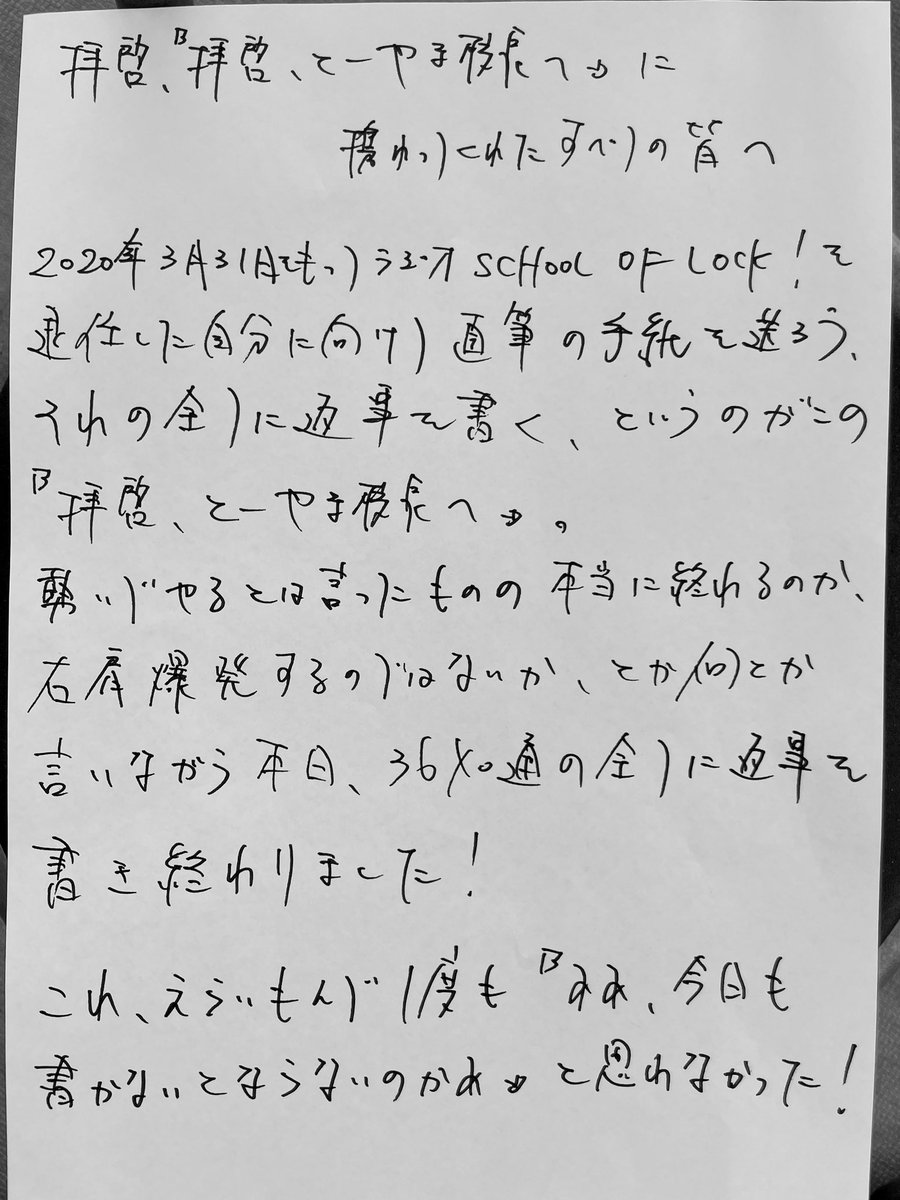 拝啓、『拝啓、とーやま校長へ』に
携わってくれたすべての皆へ
2020年3月31日でもってラジオSCHOOL OF LOCK!を
退任した自分に向けて直筆の手紙を送ろう、
それの全てに返事を書く、というのがこの
『拝啓、とーやま校長へ』。
勢いでやるとは言ったものの本当に終わるのか、
右肩爆発するのではないか、とか何とか
言いながら本日、36X0通の全てに返事を
書き終わりました!
これ、えらいもんで1度も『ああ、今日も
書かないとならないのかあ』と思わなかった!